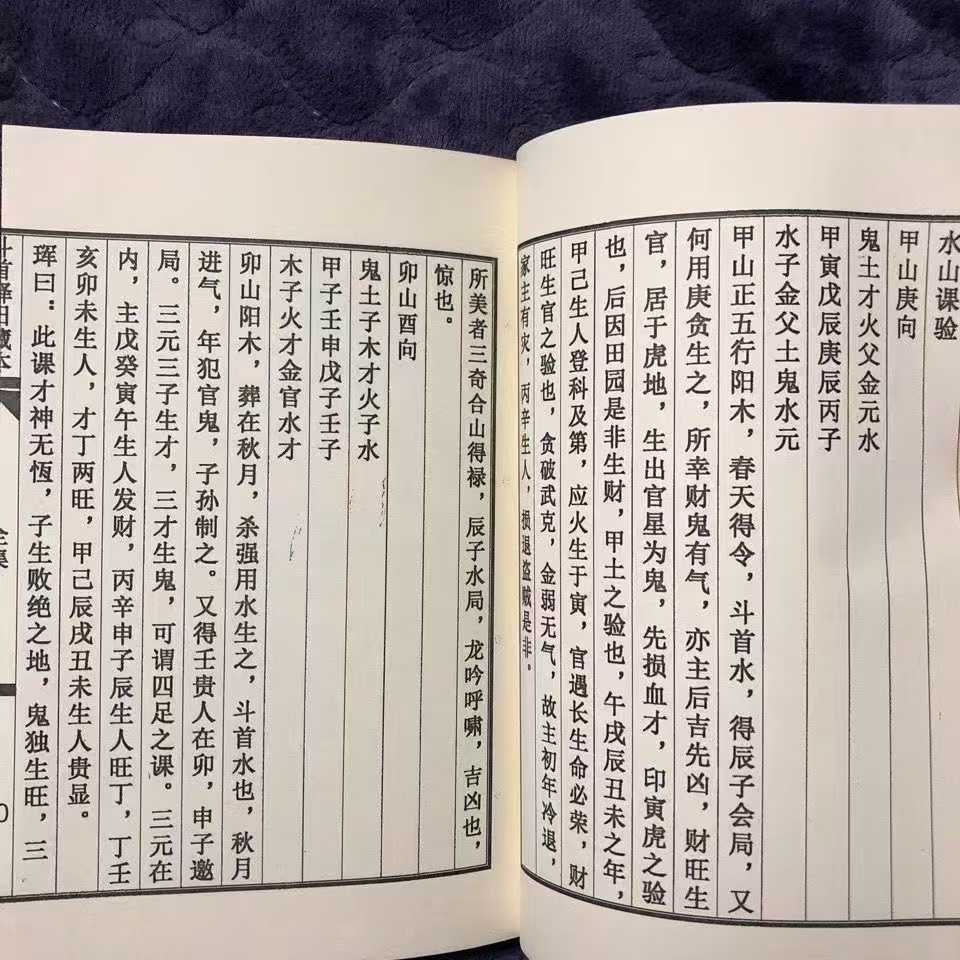 水山课验
甲山庚向
鬼土才火父金元水
甲寅戊辰庚辰丙子
水子金父土鬼水元
甲山正五行阳木，春天得令，斗首水，得辰子会局，又
何用庚贪生之，所幸财鬼有气，亦主后吉先凶，财旺生
官，居于虎地，生出官星为鬼，先损血才，印寅虎之验
也，后因田园是非生财，甲土之验也，午戌辰丑未之年，
甲己生人登科及第，应火生于寅，官遇长生命必荣，财
旺生官之验也，贪破武克，金弱无气，故主初年冷退，
家主有灾，丙辛生人，损退盗贼是非。
所美者三奇合山得禄，辰子水局，龙吟呼啸，吉凶也，
惊也。
卯山酉向
鬼土子木才火子水
甲子壬申戊子壬子
木子火才金官水才
卯山阳木，葬在秋月，杀强用水生之，斗首水也，秋月
进气，年犯官鬼，子孙制之。又得壬贵人在卯，申子邀
局。三元三子生才，三才生鬼，可谓四足之课。三元在
内，主戊癸寅午生人发财，丙辛申子辰生人旺丁，丁壬
亥卯未生人，才丁两旺，甲己辰戌丑未生人贵显。
珲曰：此课才神无恆，子生败绝之地，鬼独生旺，三
斗首择日藏本
全集
0